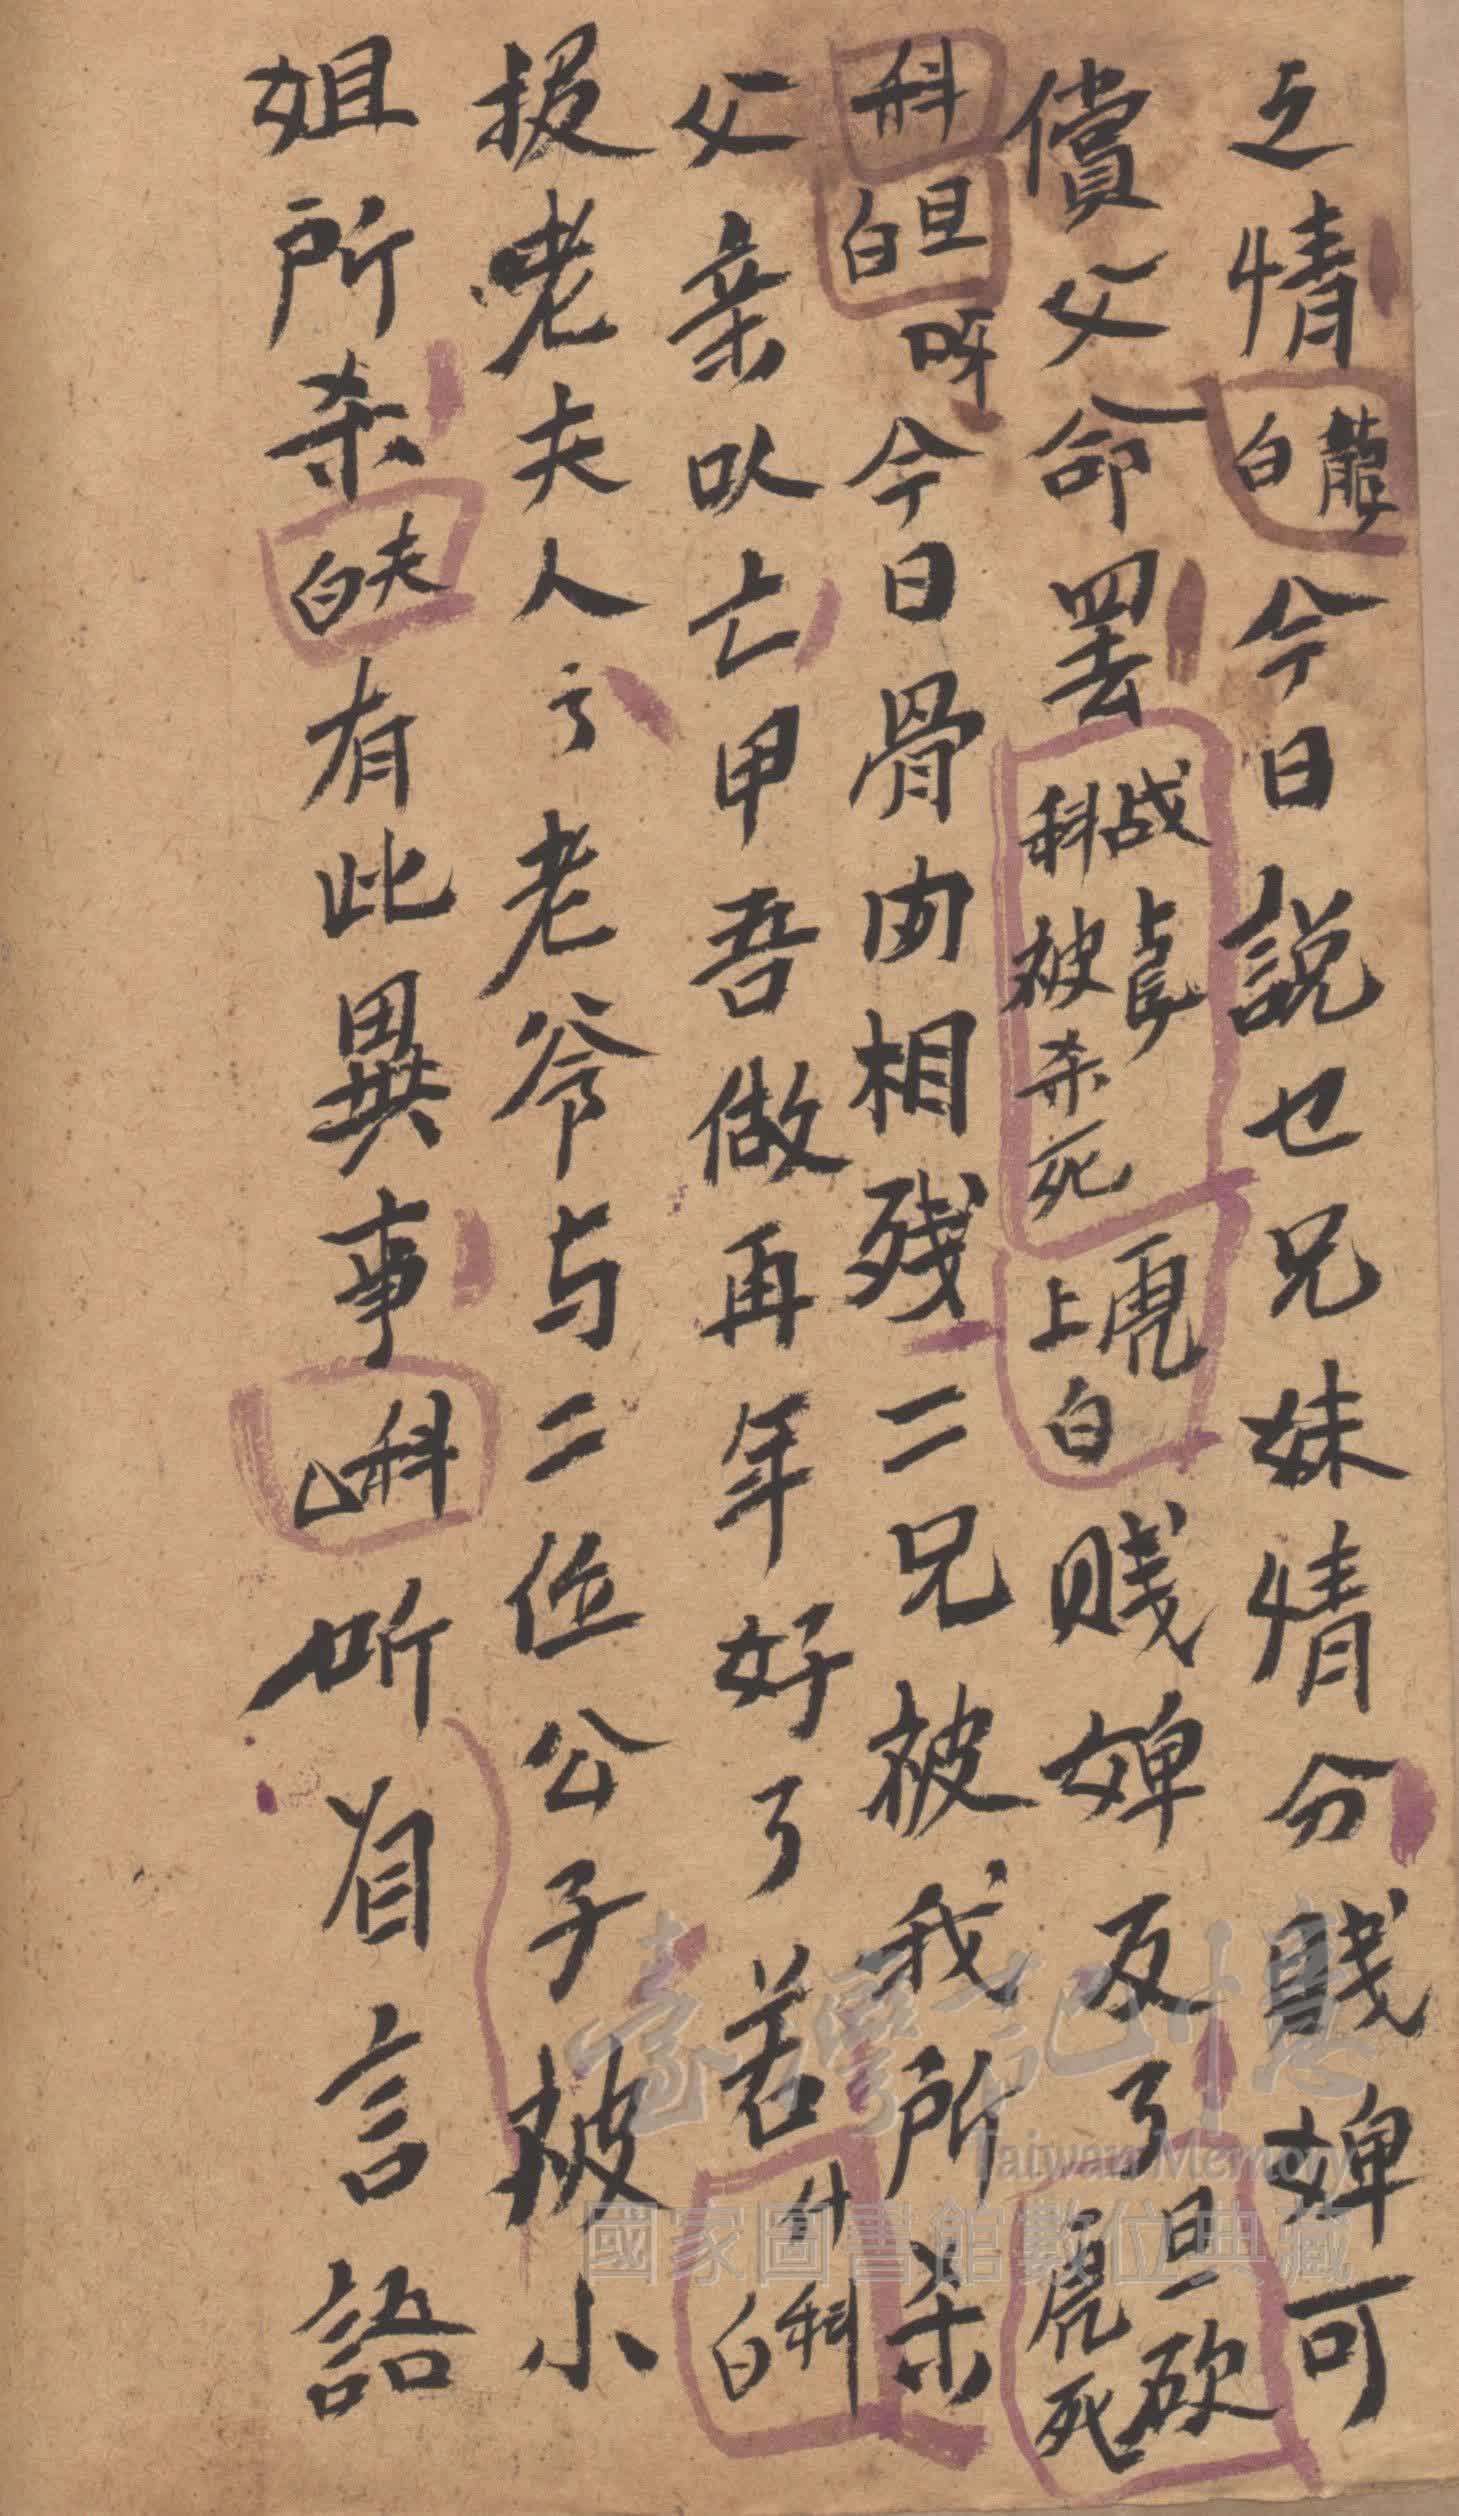 之情龍白今日説乜兄妹情分賤婢可
償父命罢战科上臺被杀死虎上白賤婢反了旦砍虎死
科旦白呀今日骨肉相残二兄被我所杀
父亲以亡甲吾做再年好了若什科白
报老夫人亏老爷与二位公子被小
姐所杀夫白有此異事科厶听眉言語
臺灣記憶
Taiwan Memory
國家圖書館數位典藏